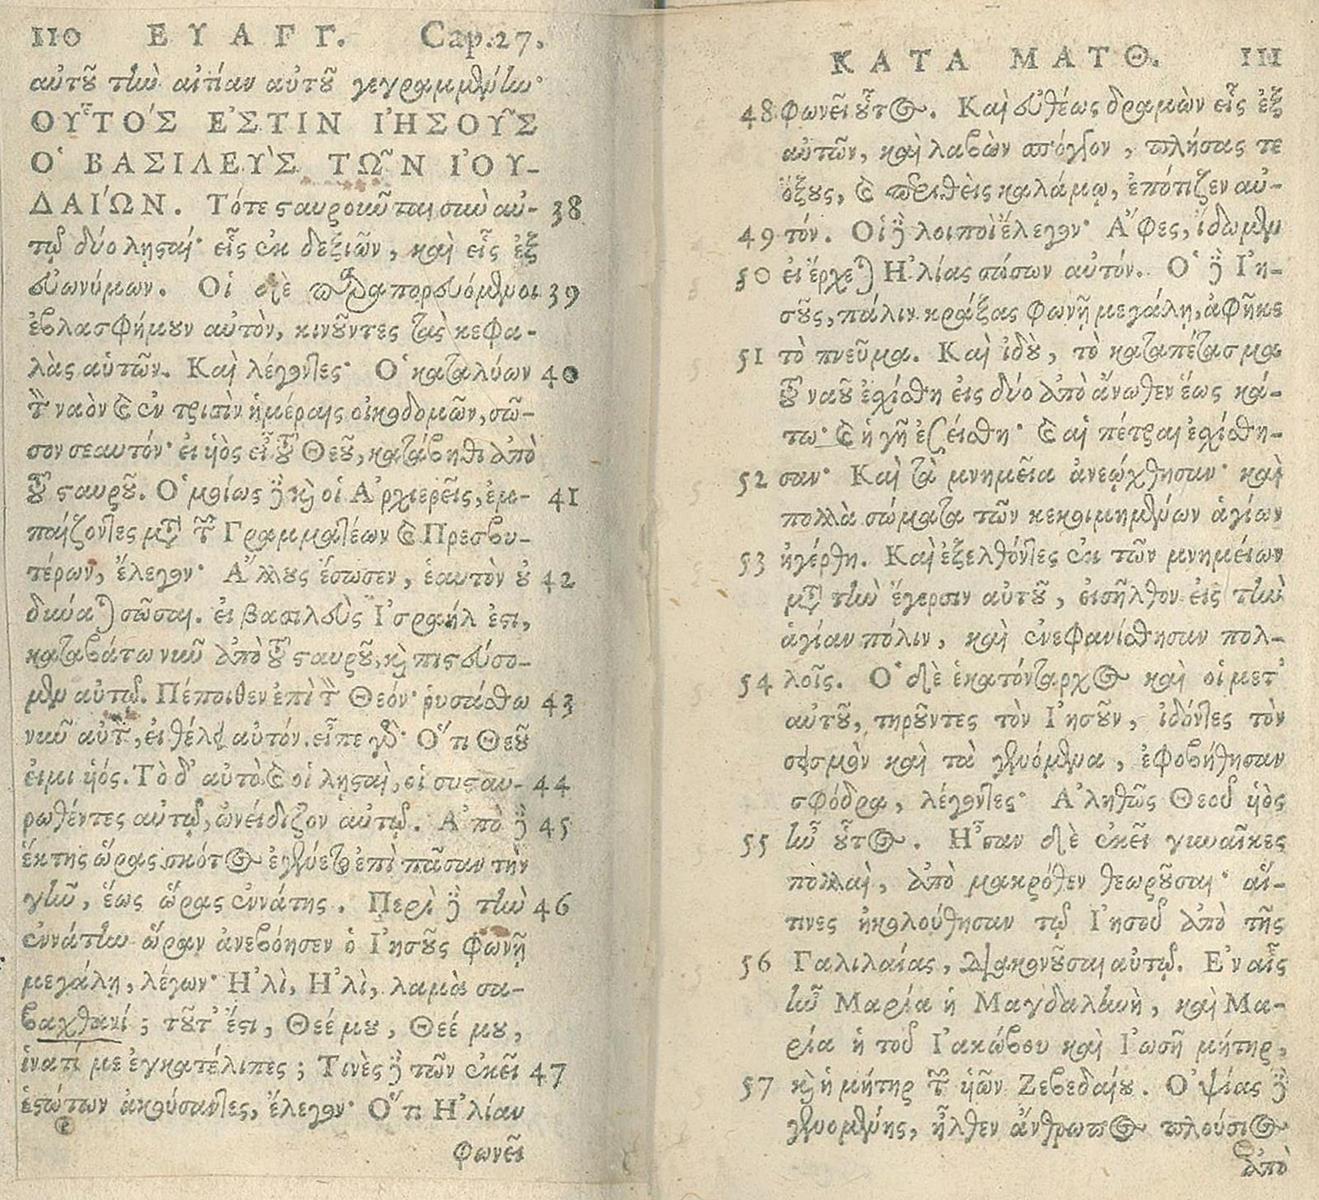 110 ΕΥΑΓΓ. Cap.27.
αὐτοῦ τὴν αἰτίαν αὐτοῦ γεγραμμένην·
ΟΥ͂ΤΟΣ ἘΣΤΙΝ ἸΗΣΟΥ͂Σ
Ὁ ΒΑΣΙΛΕῪΣ ΤΩ͂Ν ἸΟΥ-
ΔΑΊΩΝ. Τότε σαυροῦνται σὺν αὐ- 38
τῷ δύο λῃσταί· εἷς ἐκ δεξιῶν, καὶ εἷς ἐξ
εὐωνύμων. Οἱ δὲ παραπορευόμενοι 39
ἐβλασφήμουν αὐτὸν, κινοῦντες τὰς κεφα-
λὰς αὑτῶν. Καὶ λέγοντες· Ὁ καταλύων 40
τὸν ναὸν καὶ ἐν τρισὶν ἡμέραις οἰκοδομῶν, σῶ-
σον σεαυτόν· εἰ υἱὸς εἶ τοῦ Θεοῦ, κατάβηθι ἀπὸ
τοῦ σταυροῦ. Ὁμοίως δὲ καὶ οἱ Ἀρχιερεῖς, ἐμ- 41
παίζοντες μετὰ τῶν Γραμματέων καὶ Πρεσβυ-
τέρων, ἔλεγον· Ἄλλους ἔσωσεν, ἑαυτὸν οὐ 42
δύναται σῶσαι. εἰ βασιλεὺς Ἰσραήλ ἐστι,
καταβάτω νῦν ἀπὸ τοῦ σταυροῦ, καὶ πιστεύσο-
μεν αὐτῷ. Πέποιθεν ἐπὶ τὸν Θεόν· ῥυσάσθω 43
νῦν αὐτὸν, εἰ θέλει αὐτόν. εἶπε γάρ· Ὅτι Θεοῦ
εἰμι υἱός. Τὸ δ' αὐτὸ καὶ οἱ λῃσταὶ, οἱ συσταυ- 44
ρωθέντες αὐτῷ, ὠνείδιζον αὐτῷ. Ἀπὸ δὲ 45
ἕκτης ὥρας σκότος ἐγένετο ἐπὶ πᾶσαν τὴν
γῆν, ἕως ὥρας ἐννάτης. Περὶ δὲ τὴν 46
ἐννάτην ὥραν ἀνεβόησεν ὁ Ἰησοῦς φωνῇ
μεγάλῃ, λέγων· Ἠλὶ, Ἠλὶ, λαμὰ σα-
βαχθανί; τοῦτ' ἔστι, Θεέ μου, Θεέ μου,
ἱνατί με ἐγκατέλιπες; Τινὲς δὲ τῶν ἐκεῖ 47
ἑστώτων ἀκούσαντες, ἔλεγον· Ὅτι Ἠλίαν
φωνεῖ
ΚΑΤΑ ΜΑΤΘ. 111
48 φωνεῖ οὗτος. Καὶ εὐθέως δραμὼν εἷς ἐξ
αὐτῶν, καὶ λαβὼν σπόγγον, πλήσας τε
ὄξους, καὶ περιθεὶς καλάμῳ, ἐπότιζεν αὐ-
49 τόν. Οἱ δὲ λοιποὶ ἔλεγον· Ἄφες, ἴδωμεν
50 εἰ ἔρχεται Ἠλίας σώσων αὐτόν. Ὁ δὲ Ἰη-
σοῦς, πάλιν κράξας φωνῇ μεγάλῃ, ἀφῆκε
51 τὸ πνεῦμα. Καὶ ἰδοὺ, τὸ καταπέτασμα
τοῦ ναοῦ ἐσχίσθη εἰς δύο ἀπὸ ἄνωθεν ἕως κά-
τω· καὶ ἡ γῆ ἐσείσθη· καὶ αἱ πέτραι ἐσχίσθη-
52 σαν· Καὶ τὰ μνημεῖα ἀνεῴχθησαν· καὶ
πολλὰ σώματα τῶν κεκοιμημένων ἁγίων
53 ἠγέρθη. Καὶ ἐξελθόντες ἐκ τῶν μνημείων
μετὰ τὴν ἔγερσιν αὐτοῦ, εἰσῆλθον εἰς τὴν
ἁγίαν πόλιν, καὶ ἐνεφανίσθησαν πολ-
54 λοῖς. Ὁ δὲ ἑκατόνταρχος καὶ οἱ μετ'
αὐτοῦ, τηροῦντες τὸν Ἰησοῦν, ἰδόντες τὸν
σεισμὸν καὶ τὰ γενόμενα, ἐφοβήθησαν
σφόδρα, λέγοντες· Ἀληθῶς Θεοῦ υἱὸς
55 ἦν οὗτος. Ἦσαν δὲ ἐκεῖ γυναῖκες
πολλαὶ, ἀπὸ μακρόθεν θεωροῦσαι· αἵ-
τινες ἠκολούθησαν τῷ Ἰησοῦ ἀπὸ τῆς
56 Γαλιλαίας, διακονοῦσαι αὐτῷ. Ἐν αἷς
ἦν Μαρία ἡ Μαγδαληνὴ, καὶ Μα-
ρία ἡ τοῦ Ἰακώβου καὶ Ἰωσῆ μήτηρ,
57 καὶ ἡ μήτηρ τῶν υἱῶν Ζεβεδαίου. Ὀψίας δὲ
γενομένης, ἦλθεν ἄνθρωπος πλούσιος
ἀπὸ